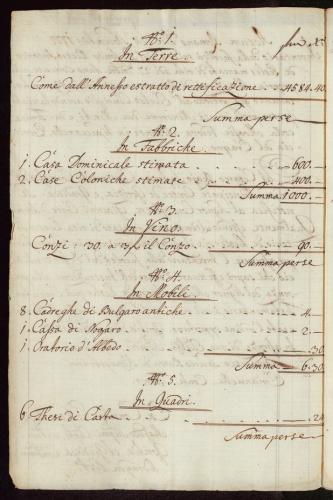 N.º 1.
In Terre.
Come dall'Annesso estratto di rettificazione . . 4584.40
Summa per se
N.º 2.
In Fabbriche.
1. Casa Dominicale stimata . . . . 600.
2. Case Coloniche stimate . . . . 400.
Summa 1000.
N.º 3.
In Vino.
Conzi : 30. a 3/ il Conzo . . . . 90.
Summa per se
N.º 4.
In Mobili.
8. Cadreghe di Bulgaro antiche . . . 4.
1 Cassa di Nogaro . . . . 2.
1 Oratorio d'Albedo . . . . .30
Summa 6.30
N.º 5.
In Quadri.
6 Thesi di Carta . . . . .24
Summa per se